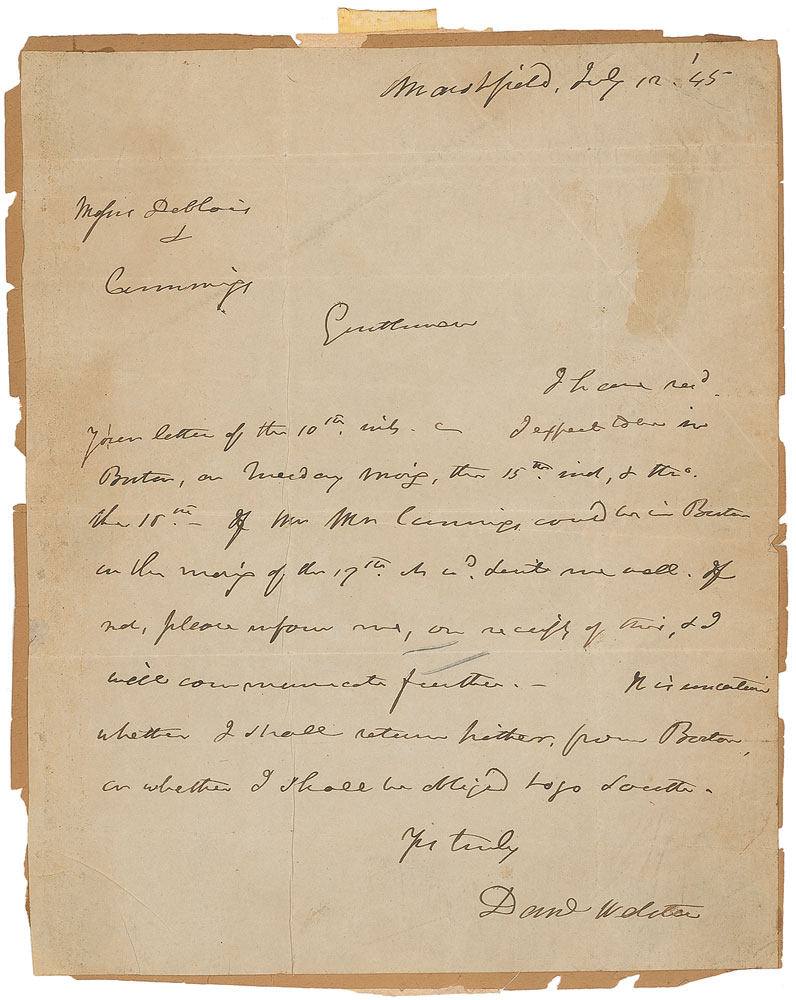 Marshfield, July 12. '45
Messrs Deblois
&
Cummings
Gentlemen
I have recd.
your letter of the 10th. inst. I expect to be in
Boston, on Tuesday morng, the 15th. inst, &
the 18th. – If Mr Cummings could be in Boston
on the morng of the 17th. it wd. suit me well. If
not, please inform me, on receipt of this, & I
will communicate further. – It is uncertain
whether I shall return hither, from Boston,
or whether I shall be oblig'd to go South.
Yrs truly
Danl Webster